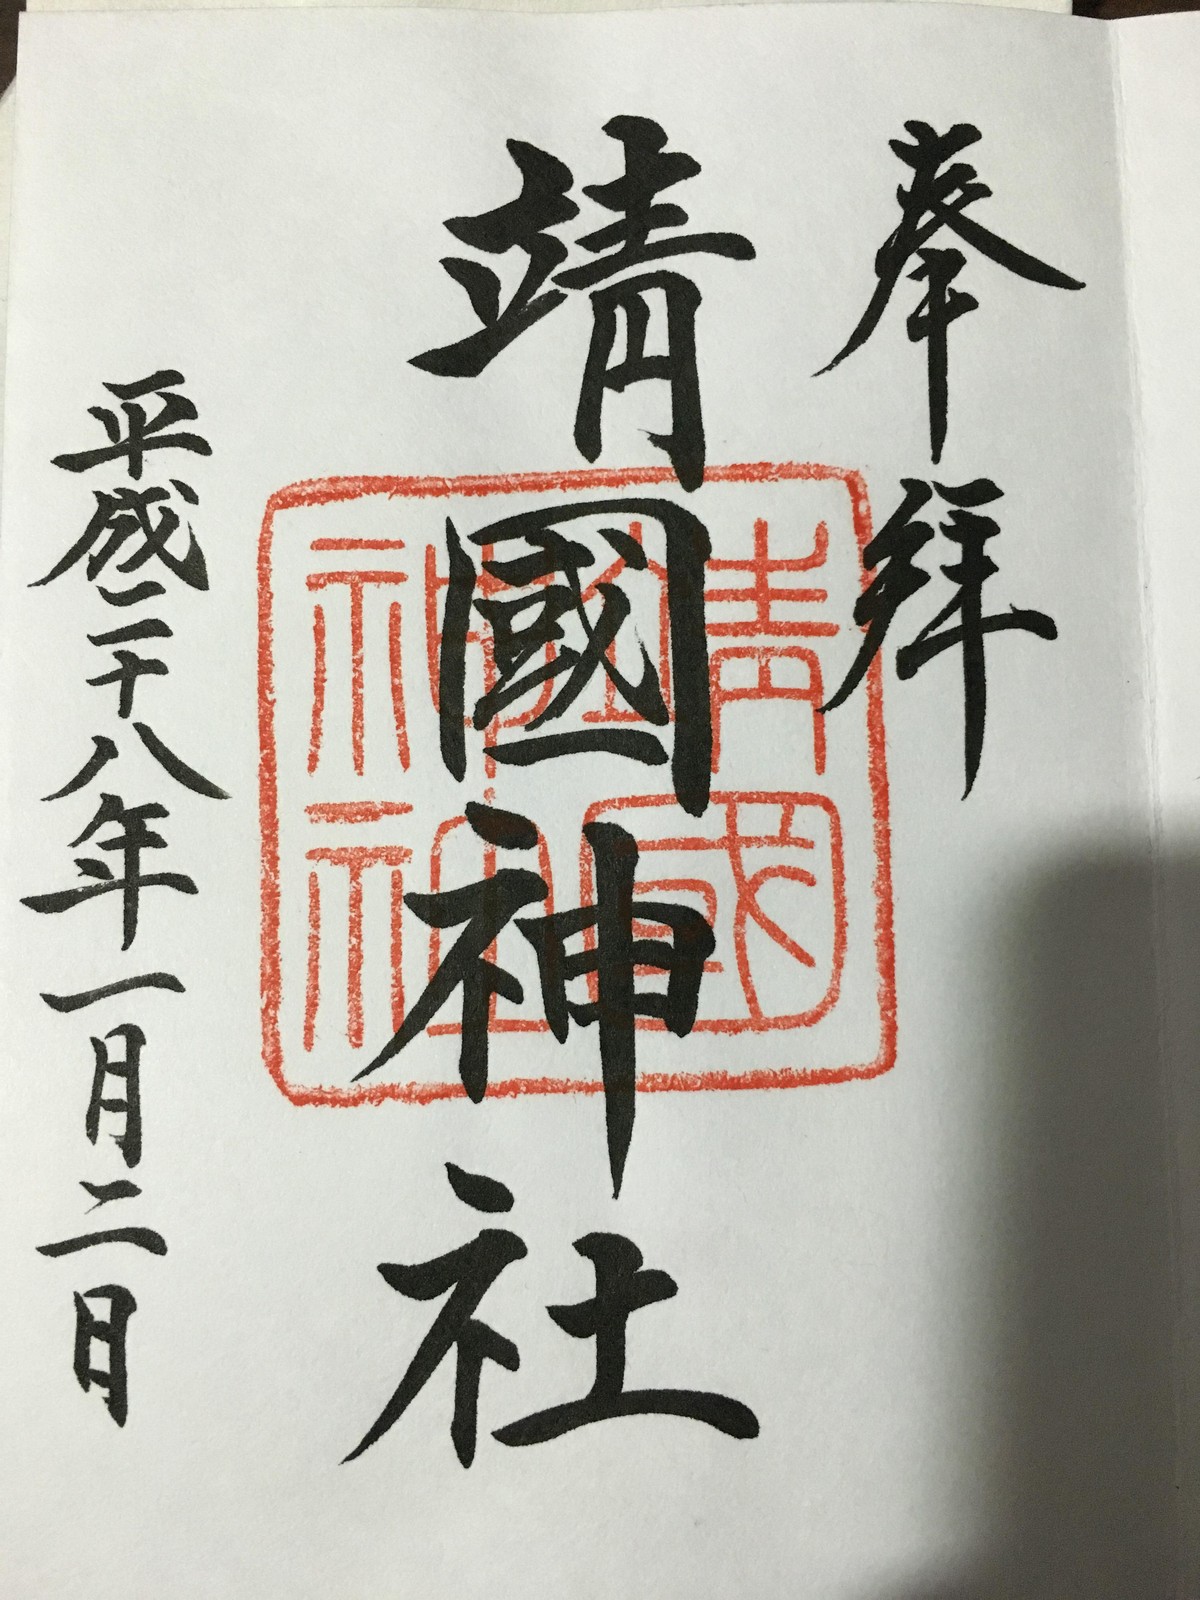 奉拝
靖國神社
平成二十八年一月二日
靖國
神社